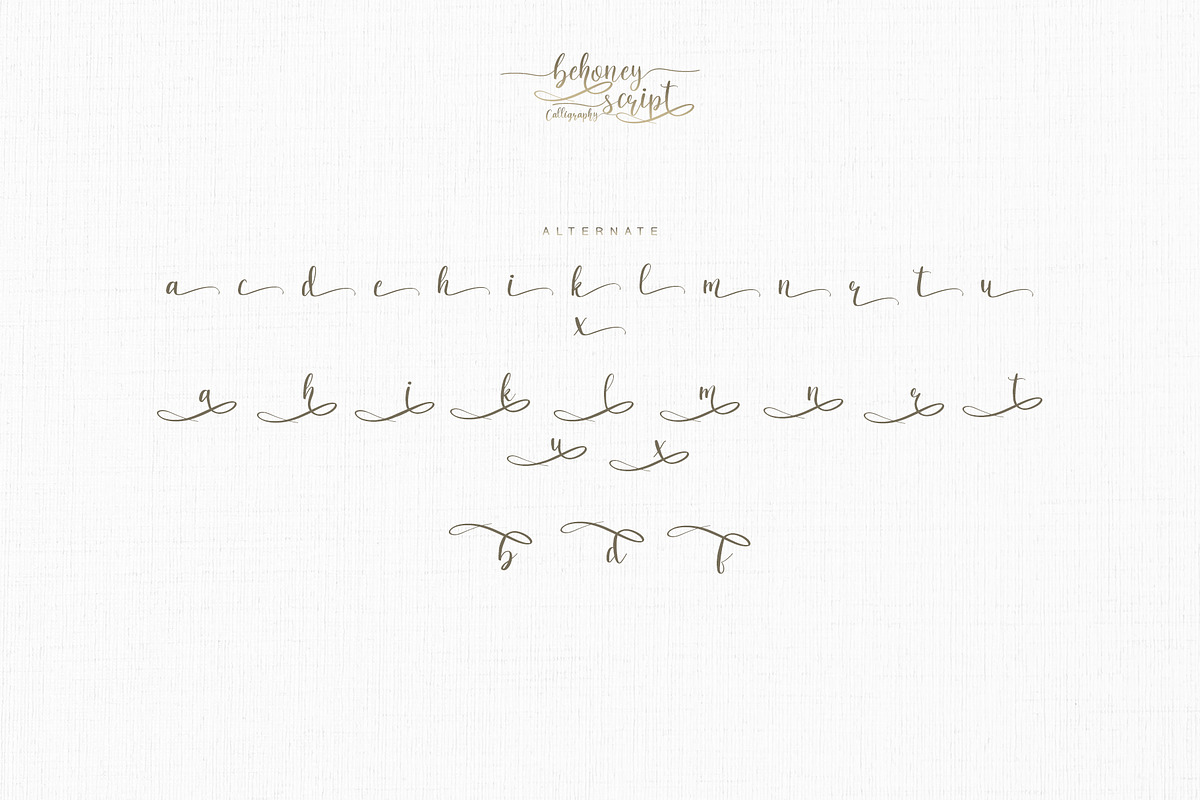 behoney
script
Calligraphy
ALTERNATE
a c d e h i k l m n r t u
x
a h i k l m n r t
u x
b d f